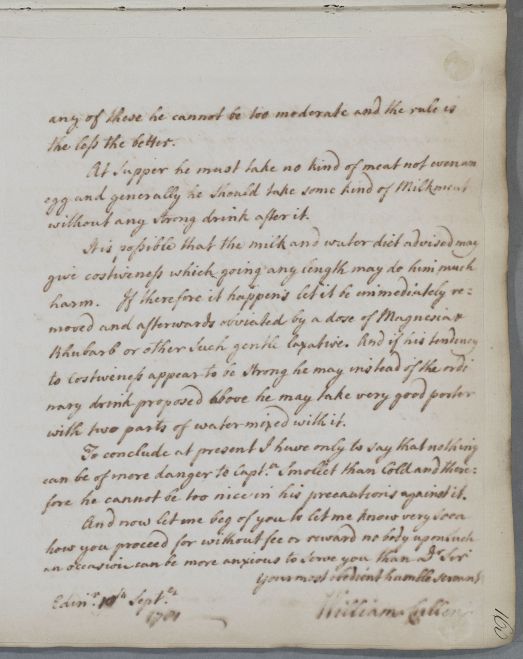 any of these he cannot be too moderate and the rule is
the less the better.
At Supper he must take no kind of meat not even an
egg and generally he should take some kind of Milk meat
without any strong drink after it.
It is possible that the milk and water diet advised may
give costiveness which going any length may do him much
harm. If therefore it happens let it be immediately re=
moved and afterwards obviated by a dose of Magnesia &
Rhubarb or other such gentle laxative. And if his tendency
to Costiveness appear to be strong he may instead of the ordi
nary drink proposed above he may take very good porter
with two parts of water mixed with it.
To conclude at present I have only to say that nothing
can be of more danger to Capt.n Smollet than Cold and there=
fore he cannot be too nice in his precautions against it.
And now let me beg of you to let me know very soon
how you proceed for without fee or reward no body upon such
an occasion can be more anxious to serve you than Dr Sir
your most obedient humble servant
Edinr. Sept.r William Cullen
1781
160